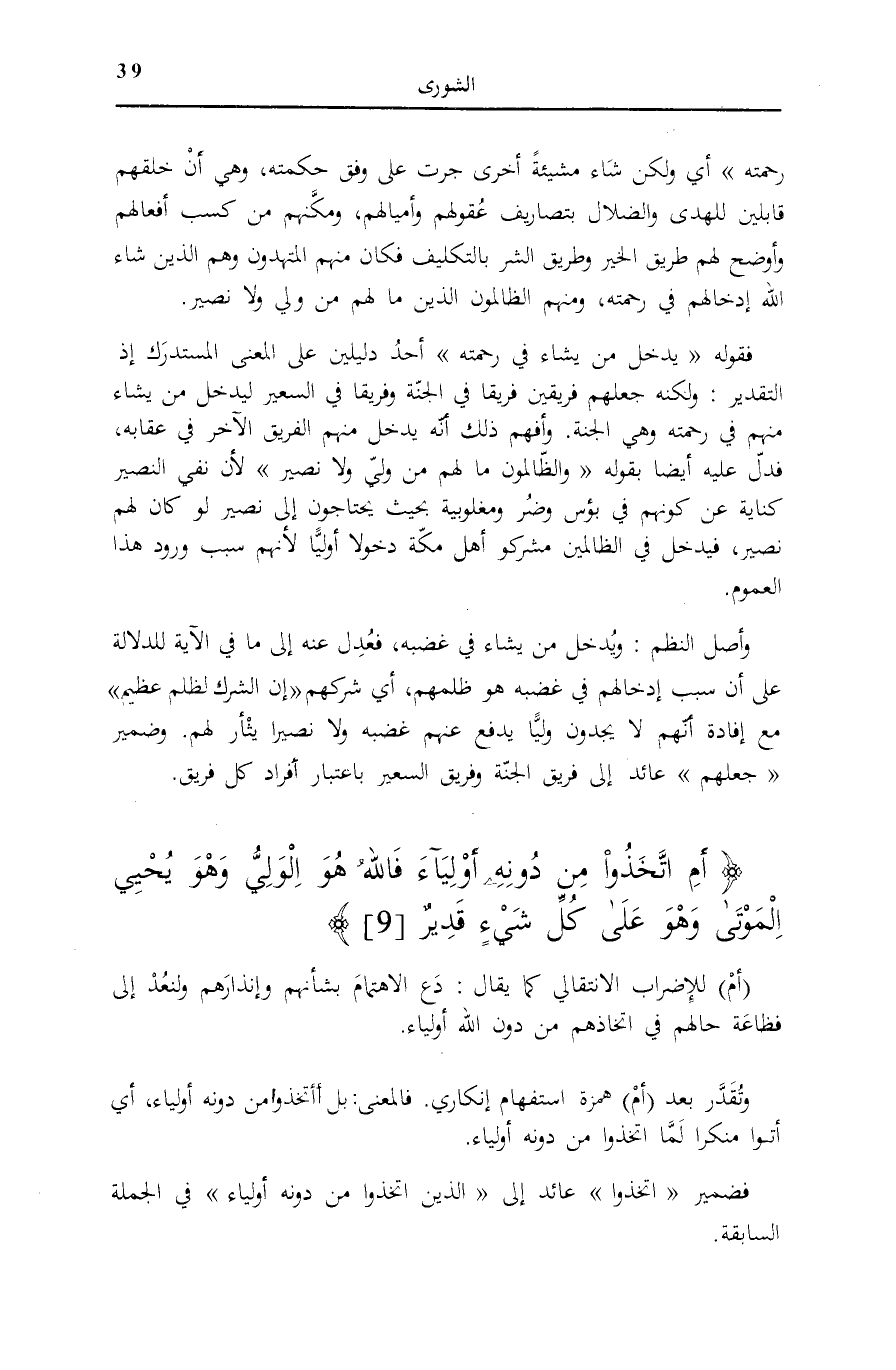 39
الشورى
رحمته » أي ولكن شَاء مشيئةً أخرى جرت على وفق حكمته، وهي أنْ خلقهم
قابلين للهدى والضلال بتصاريف عُقولهم وأميالهم، ومكَّنهم من كسب أفعالهم
وأوضح لهم طريق الخير وطريق الشر بالتكليف فكان منهم المتهدون وهم الذين شاء
الله إدخالهم في رحمته، ومنهم الظالمون الذين ما لهم من ولي ولا نصير.
فقوله « يدخل من يشاء في رحمته » أحدُ دليلين على المعنى المستدرَك إذ
التقدير : ولكنه جعلهم فريقين فريقا في الجنّة وفريقا في السعير ليدخل من يشاء
منهم في رحمته وهي الجنة. وأفهم ذلك أنّه يدخل منهم الفريق الآخر في عقابه،
فدلّ عليه أيضا بقوله « والظّالمون ما لهم من وليّ ولا نصير » لأن نفي النصير
كناية عن كونهم في بؤس وضُر ومغلوبية بحيث يحتاجون إلى نصير لو كان لهم
نصير، فيدخل في الظالمين مشركو أهل مكّة دخولا أوليًّا لأنهم سبب ورود هذا
العموم.
وأصل النظم : ويُدخل من يشاء في غضبه، فعُدِل عنه إلى ما في الآية للدلالة
على أن سبب إدخالهم في غضبه هو ظلمهم، أي شركهم«إن الشرك لظلم عظيم»
مع إفادة أنّهم لا يجدون وليًّا يدفع عنهم غضبه ولا نصيرا يثْأر لهم. وضمير
« جعلهم » عائد إلى فريق الجنّة وفريق السعير باعتبار أفراد كل فريق.
﴿ أَمِ اتَّخَذُواْ مِن دُونِهِۦ أَوْلِيَآءَ فَاللهُ هُوَ اِلْوَلِيُّ وَهْوَ يُحْيِي
اِلْمَوْتَىٰ وَهْوَ عَلَىٰ كُلِّ شَيْءٍ قَدِيرٌ [9] ﴾
(أمْ) للإضراب الانتقالي كما يقال : دَع الاهتمامَ بشأنهم وإنذارَهم ولنعُدْ إلى
فظاعَة حالهم في اتخاذهم من دون الله أولياء.
وتُقَدَّر بعد (أمْ) همزة استفهام إنكاري. فالمعنى: بل أأتخذوا من دونه أولياء، أي
أتـوا منكرا لَمَّا اتخذوا من دونه أولياء.
فضمير « اتخذوا » عائد إلى « الذين اتخذوا من دونه أولياء » في الجملة
السابقة.